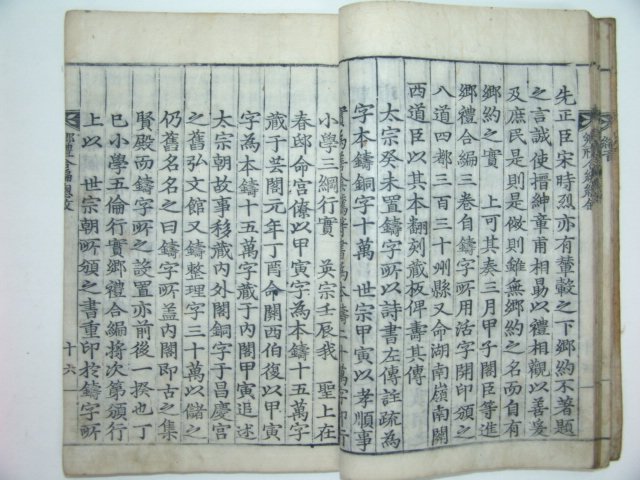 先正臣宋時烈亦有輦轂之下鄉約不著題
之言誠使搢紳章甫相勗以禮相觀以善爰
及庶民是則是倣則雖無鄉約之名而自有
鄉約之實 上可其奏三月甲子閣臣等進
鄉禮合編三卷自鑄字所用活字開印頒之
八道四都三百三十州縣又命湖南嶺南關
西道臣以其本翻刻藏板俾壽其傳
太宗癸未置鑄字所以詩書左傳註疏爲
字本鑄銅字十萬 世宗甲寅以孝順事
實爲善陰騭等書爲本鑄二十萬字印行
小學三綱行實 英宗壬辰我 聖上在
春邸命宮僚以甲寅字爲本鑄十五萬字
藏于芸閣元年丁酉命關西伯復以甲寅
字爲本鑄十五萬字藏于內閣甲寅追述
太宗朝故事移藏內外閣銅字于昌慶宮
之舊弘文館又鑄整理字三十萬以儲之
仍舊名名之曰鑄字所盖內閣即古之集
賢殿而鑄字所之設置亦前後一揆也丁
巳小學五倫行實鄉禮合編將次第頒行
上以 世宗朝所頒之書重印於鑄字所
十六